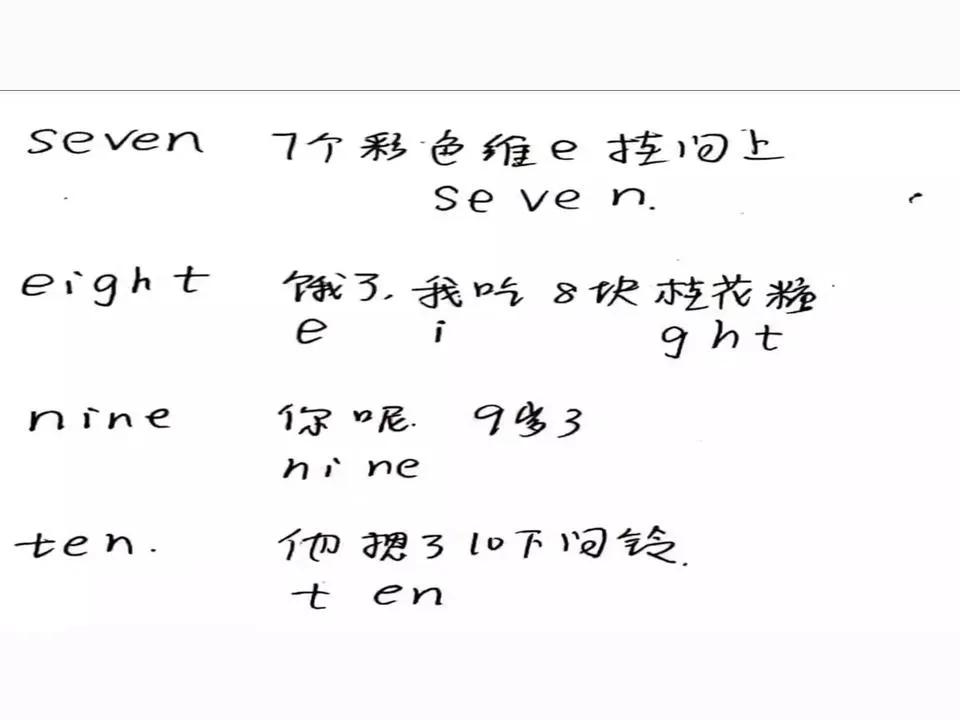 seven 7个彩色维e挂门上
se ve n.
eight 饿了,我吃8块桂花糖
e i g h t
nine 你呢. 9岁了
ni ne
ten. 他摁了10下门铃.
t en